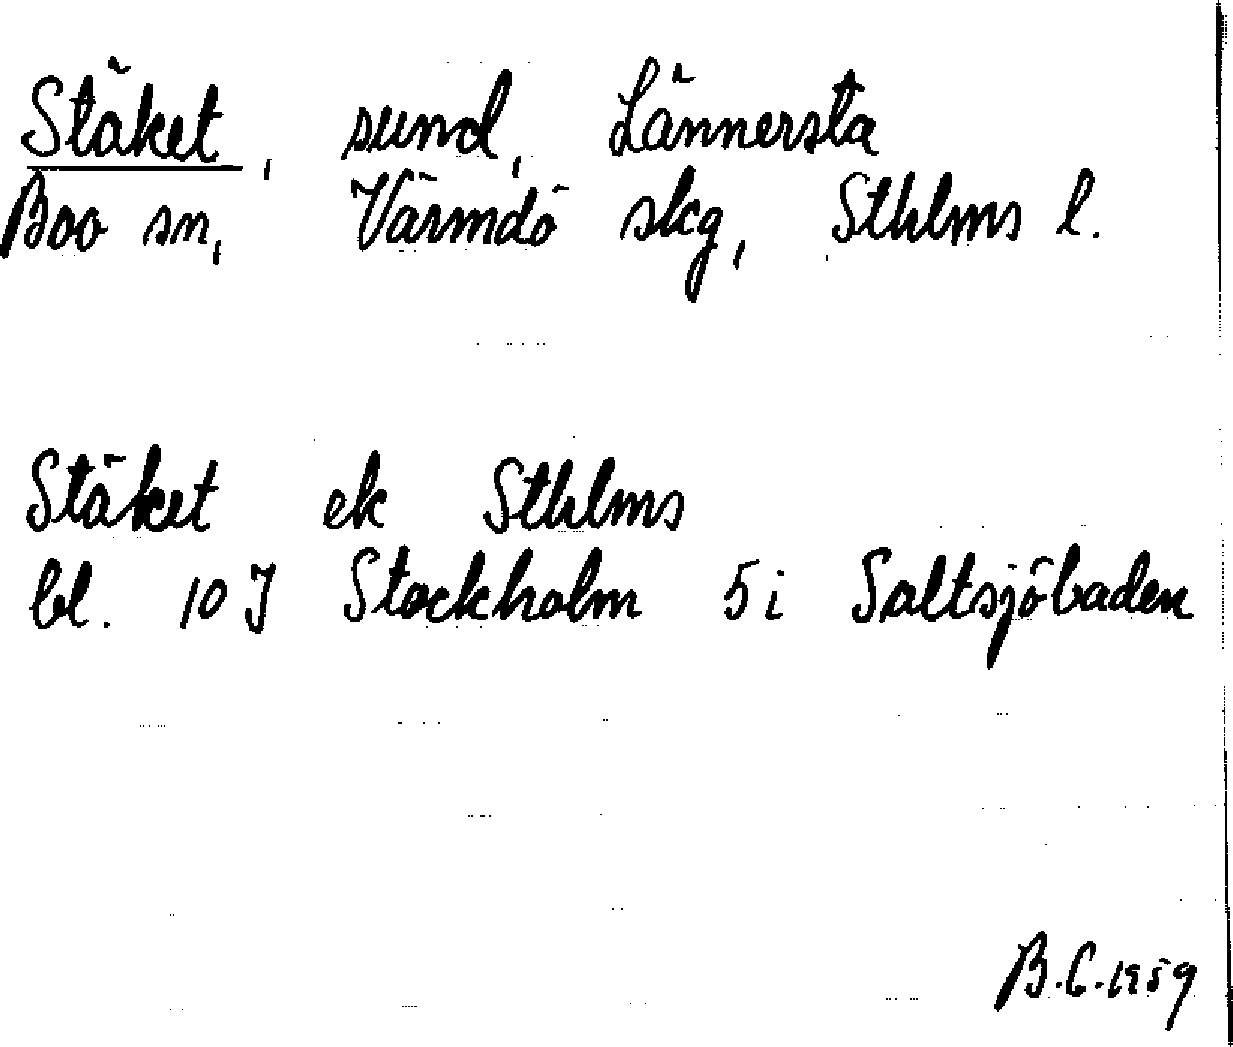 Stäket, sund, Lännersta
Boo sn, Värmdö skg, Sthlms l.
Stäket ek Sthlms
bl. 10 J Stockholm 5 i Saltsjöbaden
B.C. 1959